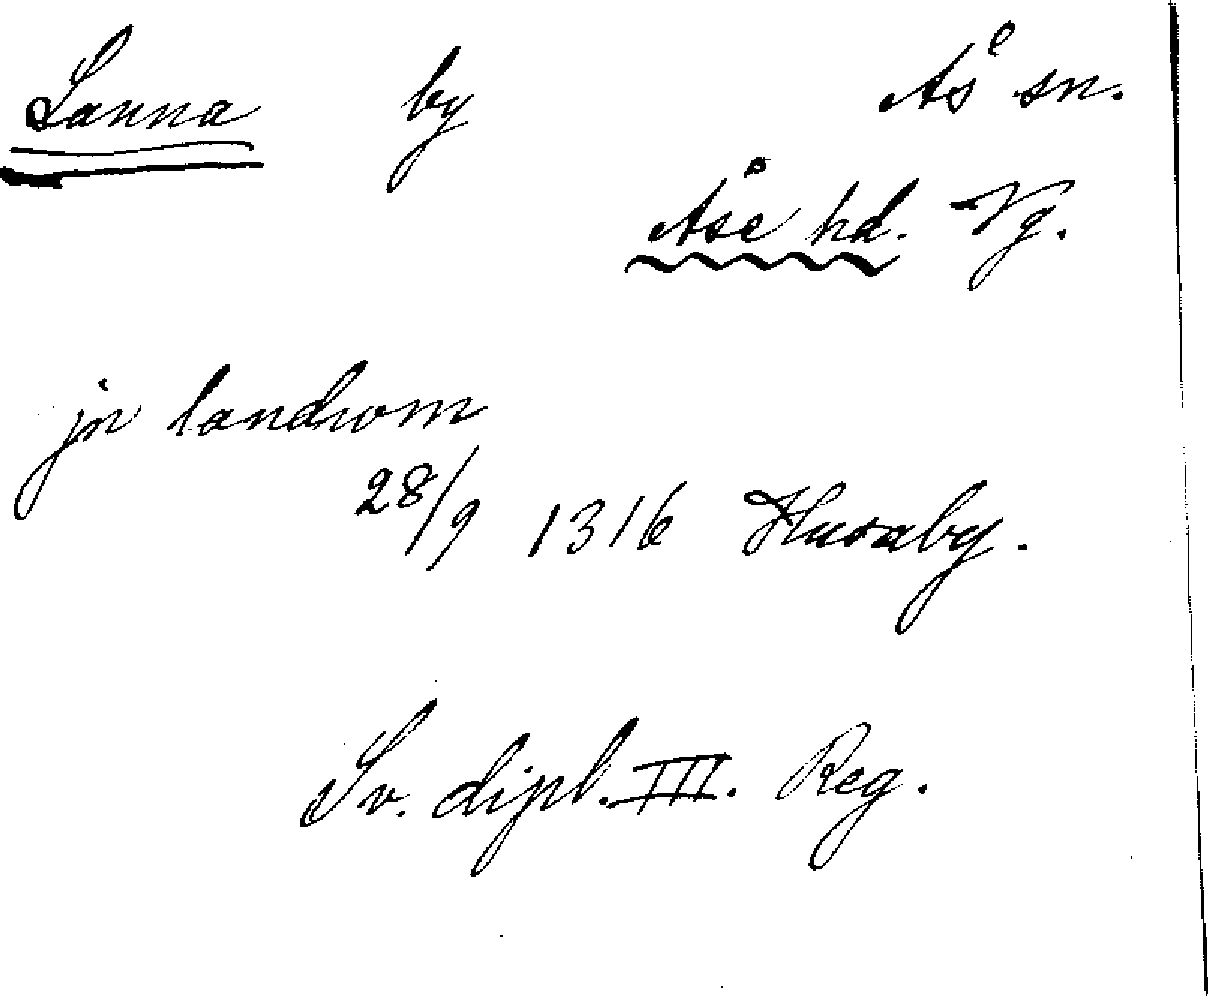 Lanna by Ås sn.
Åse hd. Vg.
jn landrom
28/9 1316 Husaby.
Sv. dipl. III. Reg.